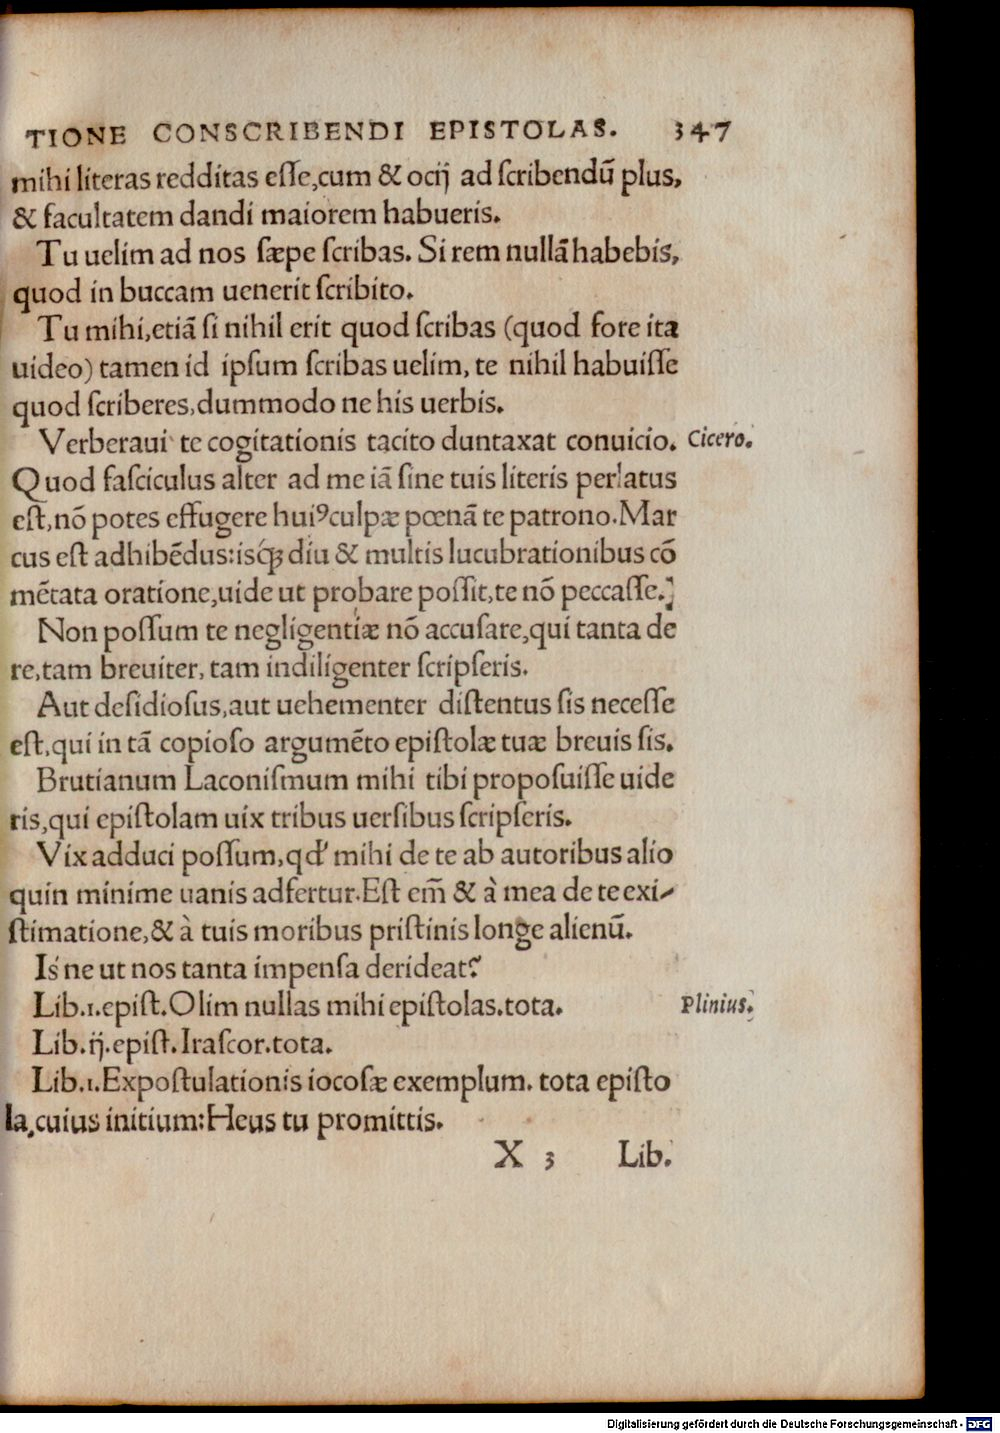 TIONE CONSCRIBENDI EPISTOLAS. 347
mihi literas redditas eſſe,cum & ocij ad ſcribendū plus,
& facultatem dandi maiorem habueris.
Tu uelim ad nos ſæpe ſcribas. Si rem nullā habebis,
quod in buccam uenerit ſcribito.
Tu mihi,etiā ſi nihil erit quod ſcribas (quod fore ita
uideo) tamen id ipſum ſcribas uelim, te nihil habuiſſe
quod ſcriberes,dummodo ne his uerbis.
Verberaui te cogitationis tacito duntaxat conuicio. Cicero.
Quod faſciculus alter ad me iā ſine tuis literis perlatus
eſt,nō potes effugere huiꝰculpæ pœnā te patrono.Mar
cus eſt adhibēdus:isq́ꝫ diu & multis lucubrationibus cō
mētata oratione,uide ut probare poſſit,te nō peccaſſe.
Non poſſum te negligentiæ nō accuſare,qui tanta de
re,tam breuiter, tam indiligenter ſcripſeris.
Aut deſidioſus,aut uehementer diſtentus ſis neceſſe
eſt,qui in tā copioſo argumēto epiſtolæ tuæ breuis ſis.
Brutianum Laconiſmum mihi tibi propoſuiſſe uide
ris,qui epiſtolam uix tribus uerſibus ſcripſeris.
Vix adduci poſſum,qd' mihi de te ab autoribus alio
quin minime uanis adfertur.Eſt em̄ & à mea de te exi-
ſtimatione,& à tuis moribus priſtinis longe alienū.
Is'ne ut nos tanta impenſa derideat?
Lib.1.epiſt.Olim nullas mihi epiſtolas.tota. Plinius.
Lib.ij.epiſt.Iraſcor.tota.
Lib.1.Expoſtulationis iocoſæ exemplum. tota epiſto
la,cuius initium:Heus tu promittis.
X 3 Lib.
Digitalisierung gefördert durch die Deutsche Forschungsgemeinschaft - DFG